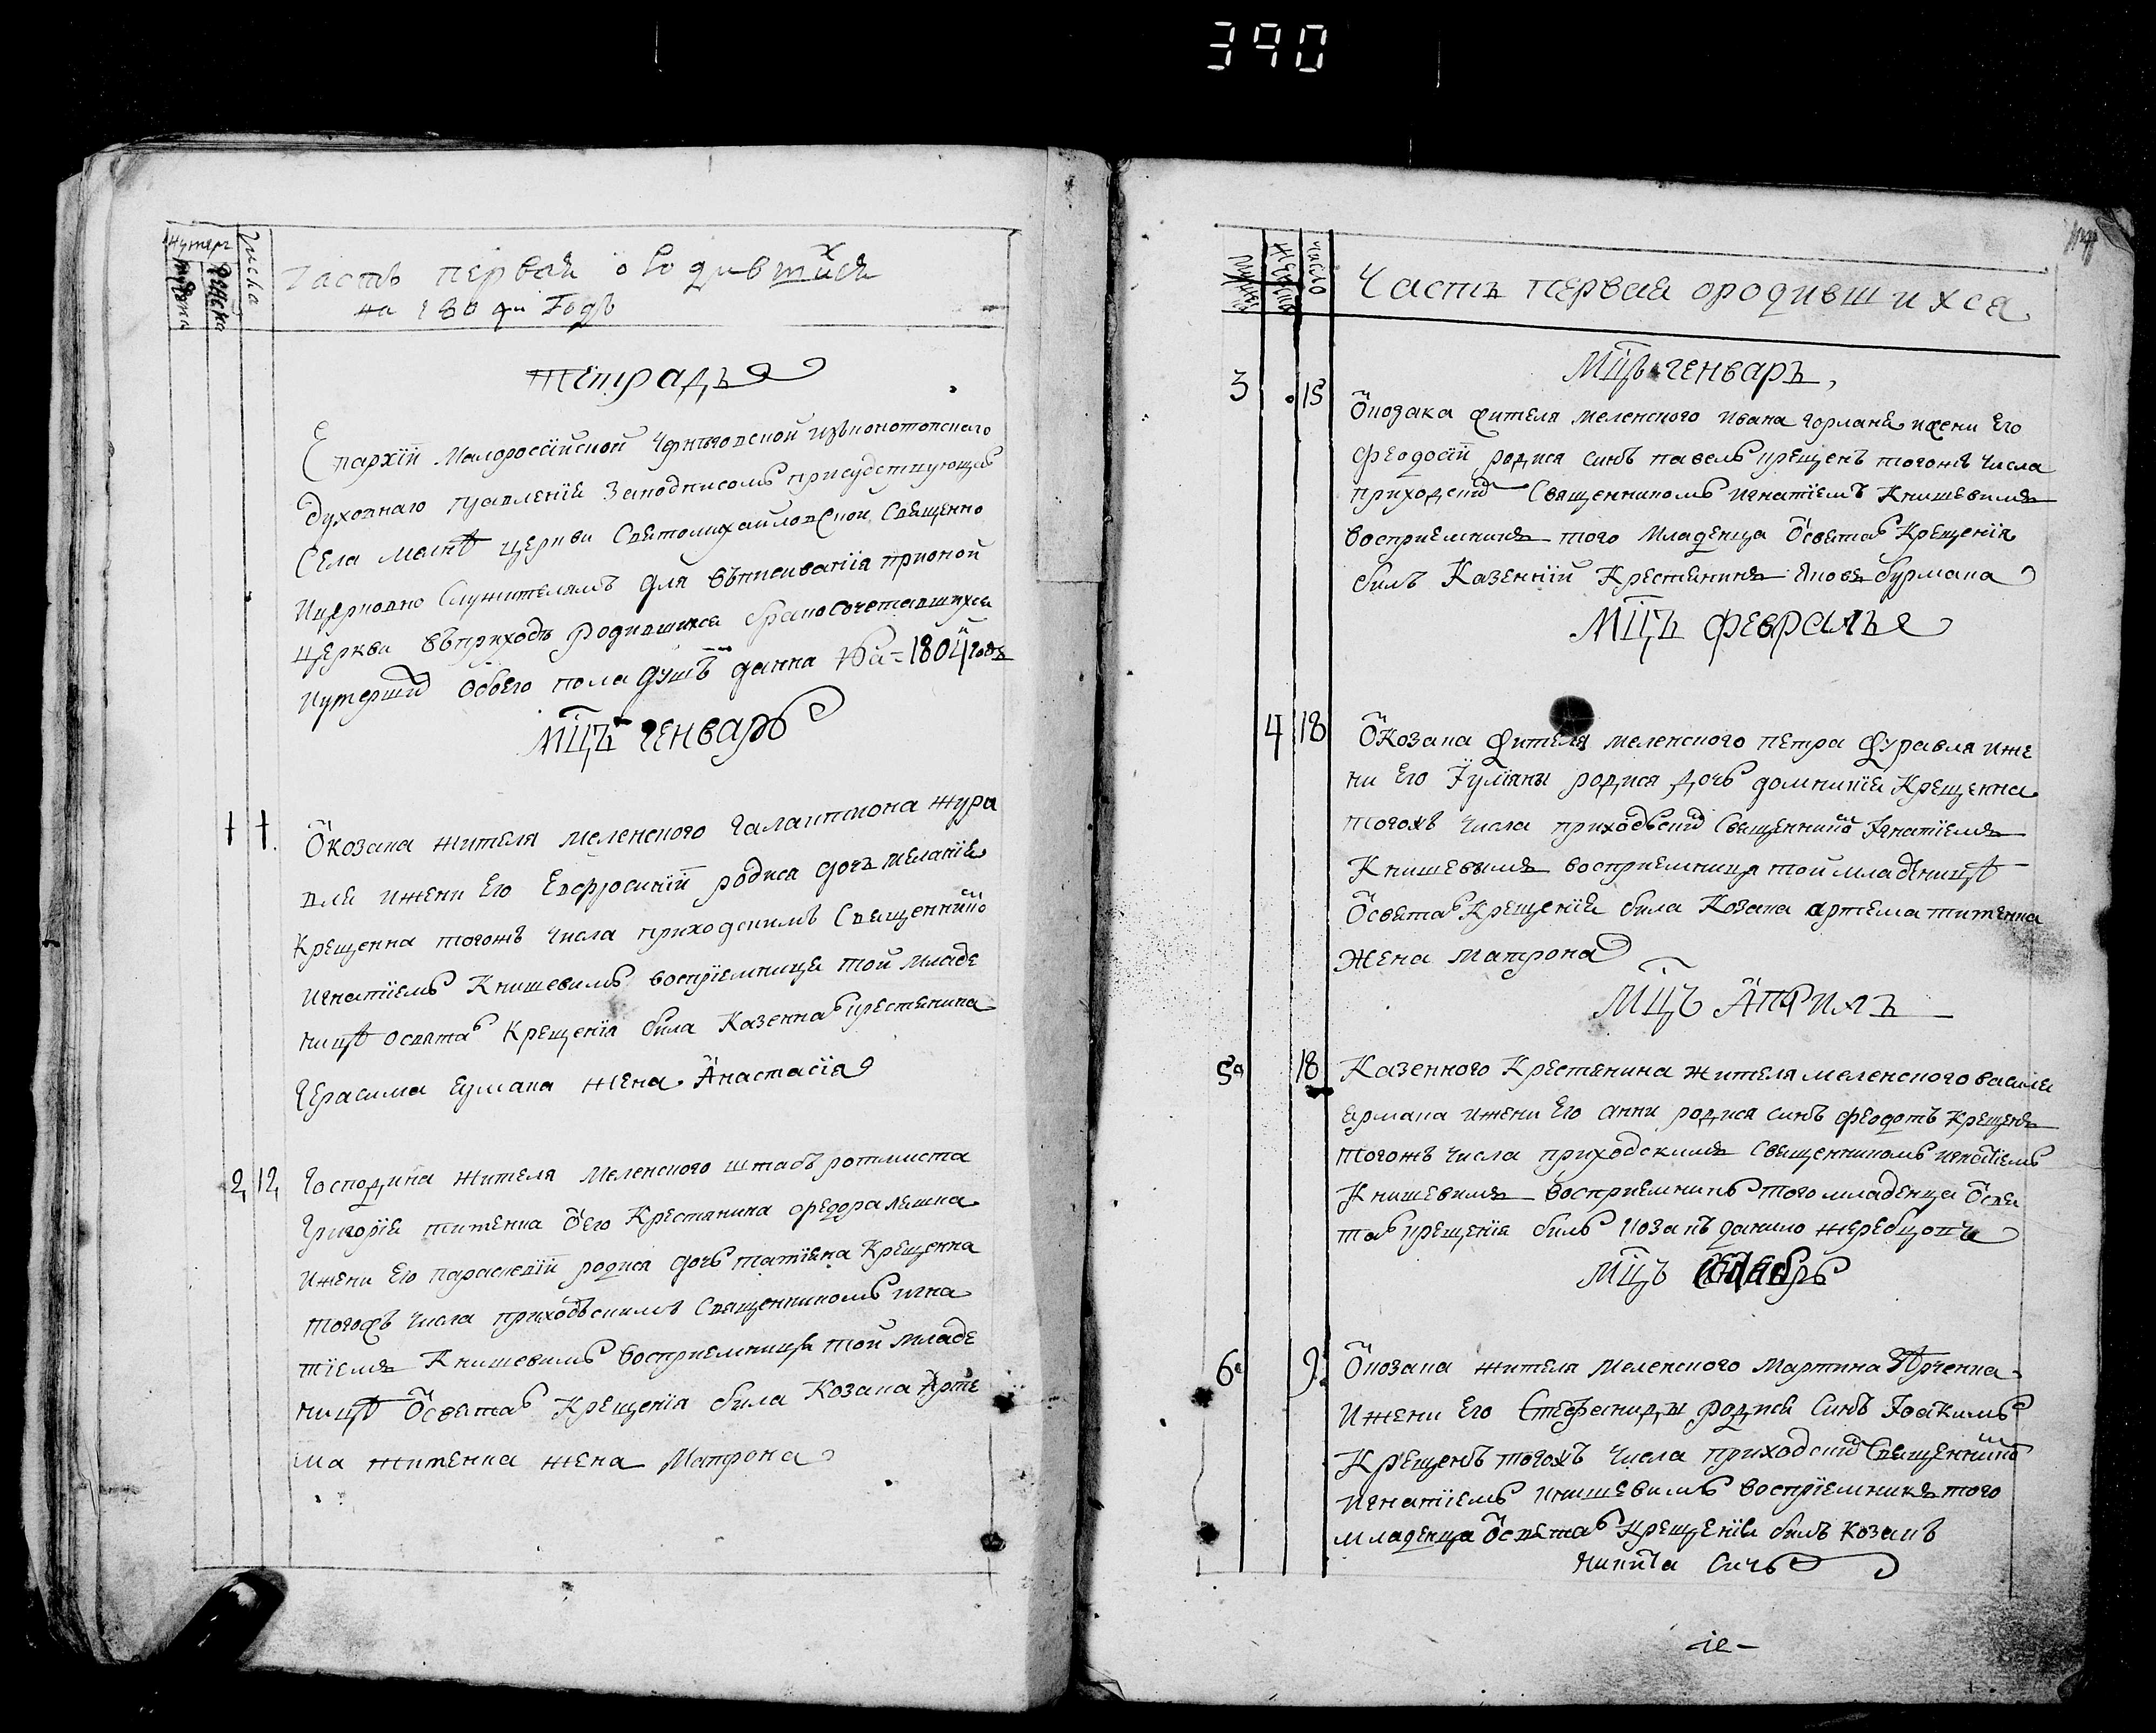 390
Нумеръ
Числа
мужеска
женска
Часть первая о Родившихся
на 1804й Годъ
Тетрадь
Епархїи Малороссїйской Черниговской изъконотопского
духовнаго правленїя Заподписомъ присудствующихъ
Села мелнѣ церкви Святомихайловской Священно
Ицерковно Служителямъ для въписиванїя прионой
церкви въприходѣ родившихся бракосочетавшихся
иумершихъ обоего пола душъ данна на 1804й годъ
мц҃ъ генваръ
1 1. Ѿ козака жителя меленского Галактиона жура
вля ижени Его Евфросинїи родися дочъ меланїя
Крещенна тогожъ числа приходскимъ Священнико
Игнатїемъ Книшевимъ воспрїемница той младе
ницѣ освятаѡ Крещенїя била Казеннаѡ крестянина
Герасима ермака жена Анастасїя
2 12 Господина жителя меленского штабъ ротмиста
Григорїя титенка Ѿ его Крестянина федора лешка
Ижени Его параскевїи родися дочъ татїяна Крещенна
тогожъ числа приходъскимъ Священникомъ игна
тїемъ Книшевимъ восприемница той младе
ницѣ Ѿсвятаѡ Крещенїя била Козака Арте
ма титенка жена Матрона
число
Часть первая ородившихся
Мц҃ъ генваръ
3 15 Ѿ козака жителя меленского Ивана ижени Его
Феодосїи родися синъ павелъ крещенъ тогожъ числа
приходски Священникомъ игнатїемъ Книшевимъ
восприемникъ того младенца Ѿсвятаѡ Крещенїя
билъ Казеннїй Крестянинъ яковъ бурмака
Мц҃ъ февралъ
4 18 Ѿ Козака жителя меленского петра журавля иже
ни Его Їулїяны родися дочъ домникїя Крещенна
тогожъ числа приходъски Священнико Їгнатїемъ
Книшевымъ восприемница той младеницѣ
Ѿсвятаѡ Крещенїя била Козака артема титенка
жена матрона
Мц҃ъ Априлъ
5 18 Казенного Крестянина жителя меленского василя
ермака ижени Его анни родися синъ феодотъ Крещенъ
тогожъ числа приходскимъ Священникомъ игнатїемъ
Книшевимъ восприемникъ того младенца Ѿсвя
таѡ крещенїя билъ козакъ данило жеребцовъ
Мц҃ъ
6 9. Ѿ козака жителя меленского Мартина
Ижени Его Стефаниды родися Синъ Їоакимъ
Крещенъ тогожъ числа приходски Священнико
Игнатїемъ книшевимъ воспрїемникъ того
младенца Ѿсвятаѡ Крещенїя билъ козакъ
никита Сичъ